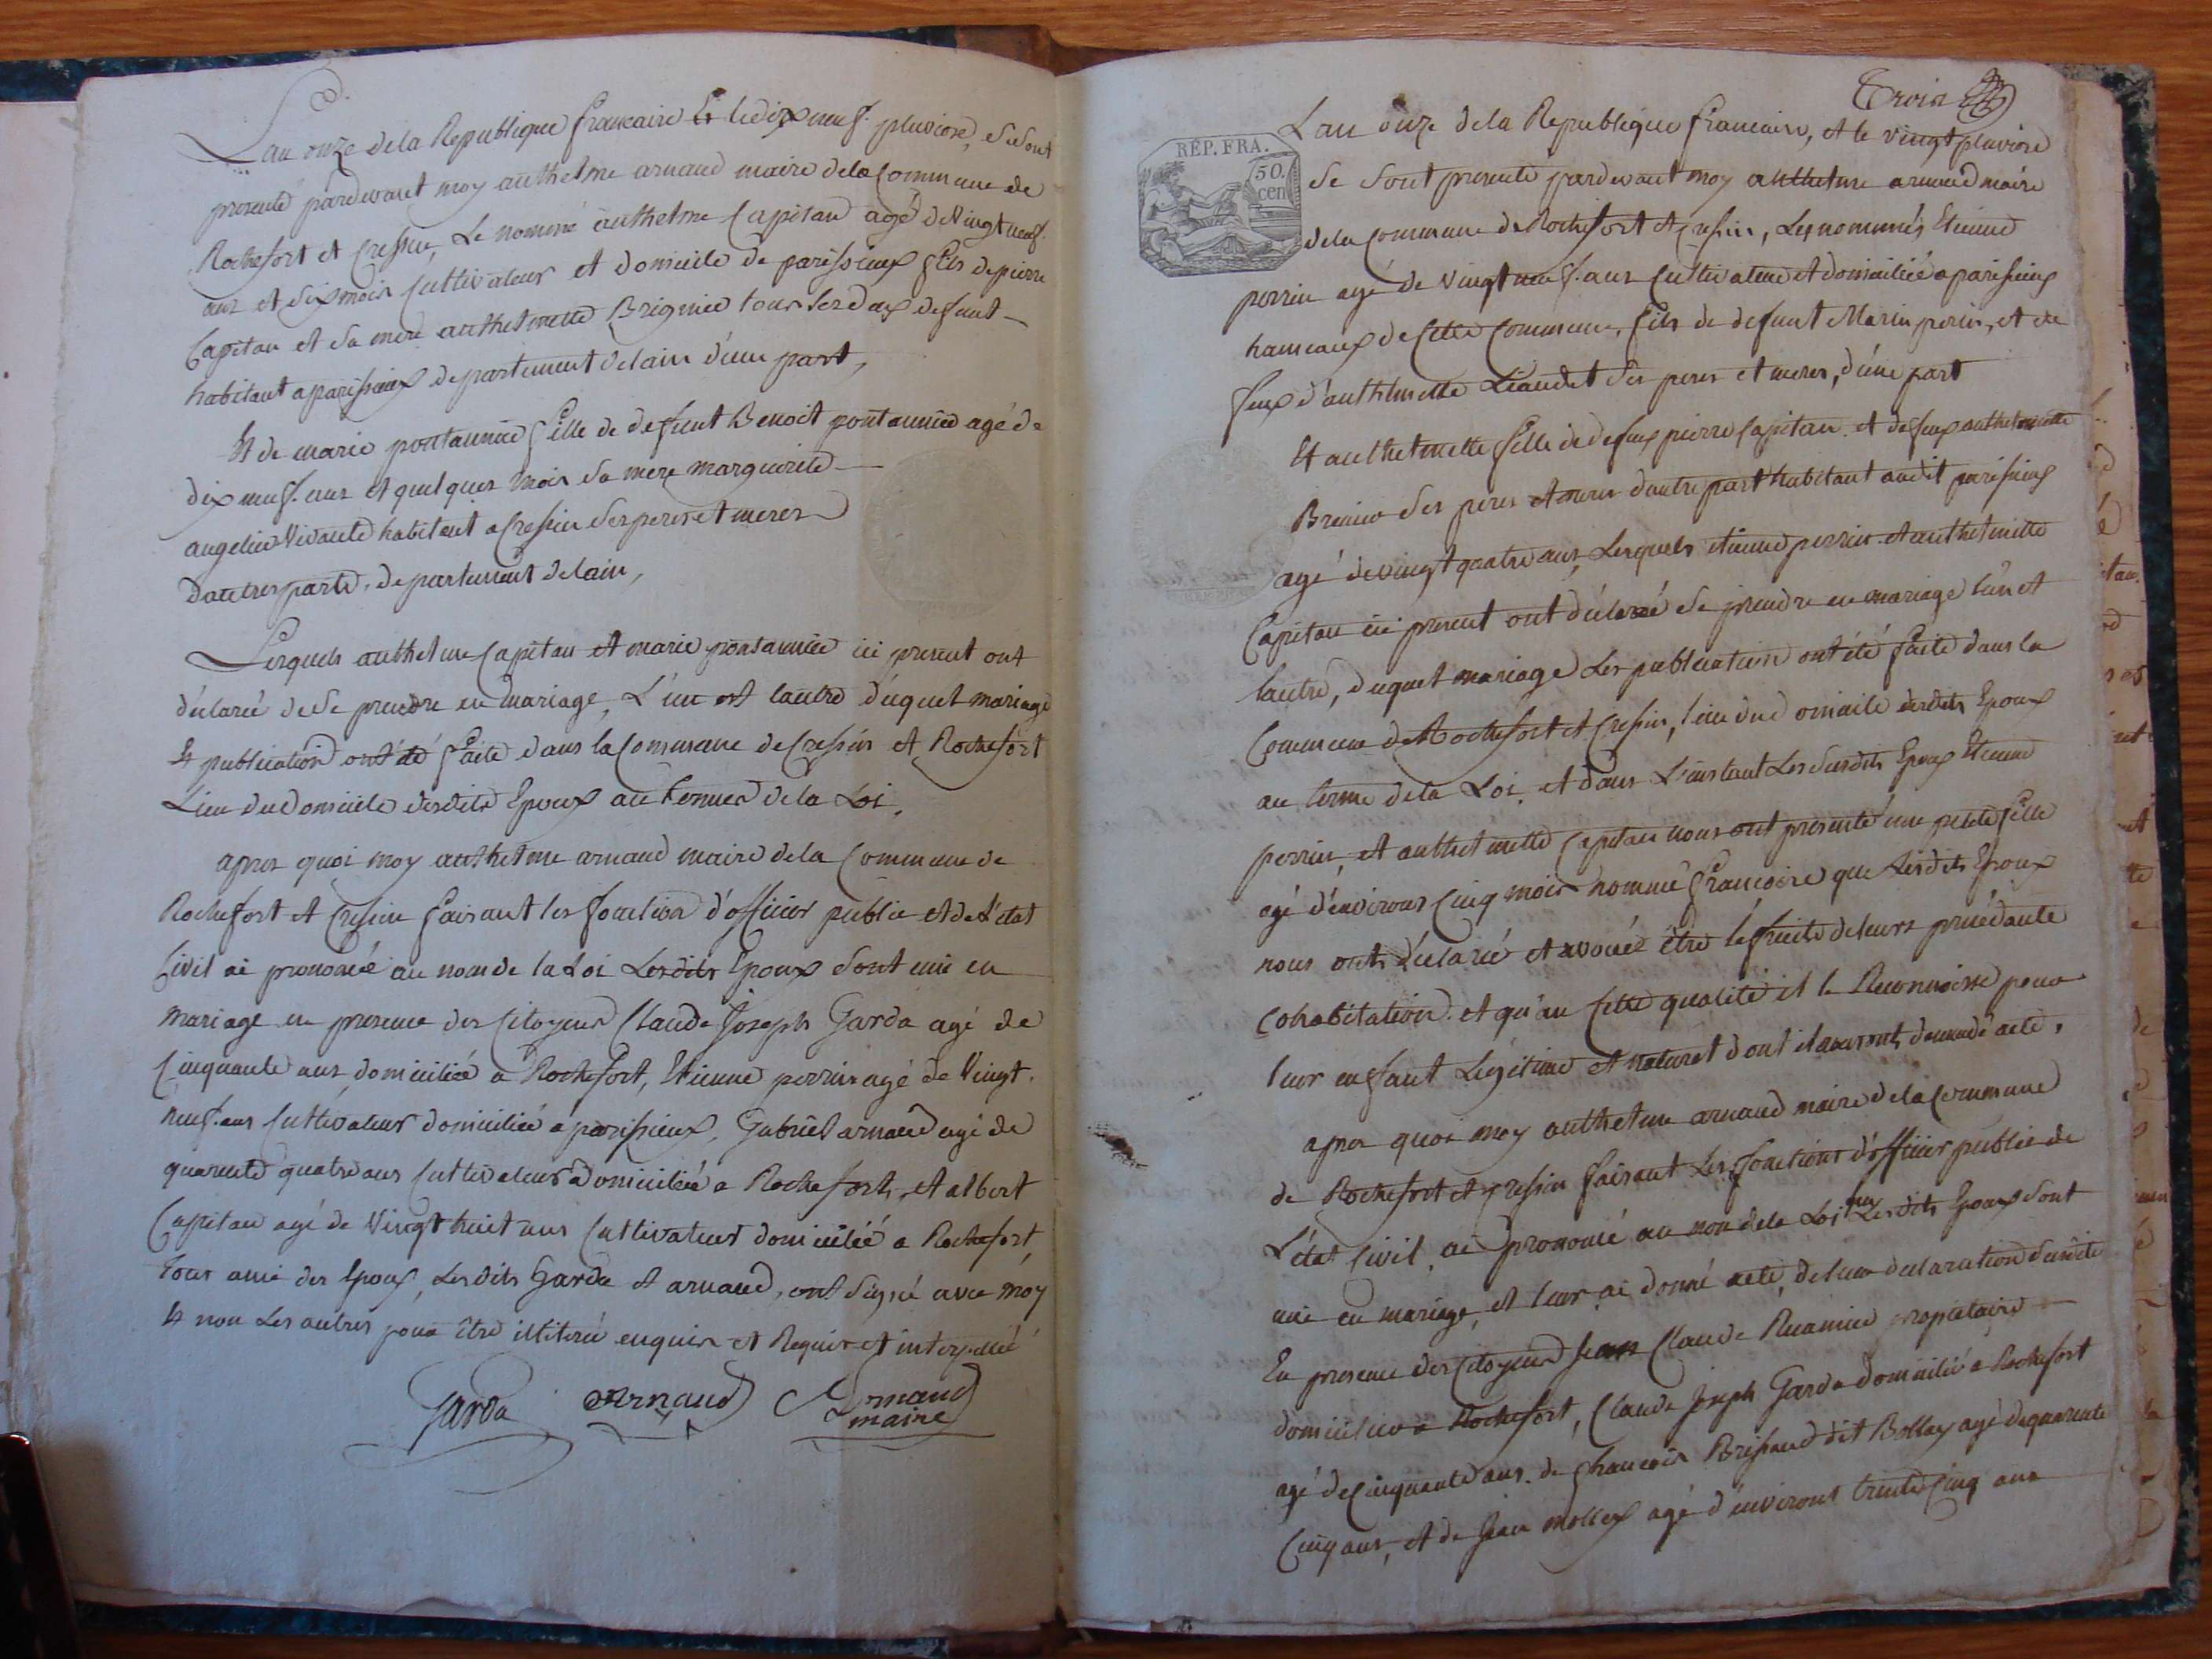 L'an onze de la Republique francaise Et le dix neuf pluviose, se sont
presenté pardevant moy anthelme arnaud maire de la Commune de
Rochefort et Cressin, Le nommé anthelme Capitan agé de Vingt neuf
ans et six mois Cultivateur et domicile de parissieux fils de pierre
Capitan et sa mere anthelmette Brignier tous les deux defunt
habitant a parissieux departement de lain d'une part,
Et de marie pontannier fille de defunt Benoit pontannier agé de
dix neuf ans et quelques mois sa mere marguerite
angelier Vivante habitant a Cressin ses peres et meres
dautres parte, departement de lain,
Lesquels anthelme Capitan et marie pontannier ici present ont
déclaré de se prendre en mariage, L'un et lautre duquel mariage
Et publication ont été faite dans la Commune de Cressin et Rochefort
Lieu du Domicile desdits Epoux au termes de la Loi,
apres quoi moy anthelme arnaud maire de la Commune de
Rochefort et Cressin faisant les fonction d'officier public et de l'etat
Civil ai prononcé au nom de la Loi Lesdits Epoux sont unie en
mariage en presence des Citoyens Claude Joseph Garda agé de
Cinquante ans domicilié a Rochefort, Etienne perrin agé de Vingt
neuf ans Cultivateur domicilié a parissieux, Gabriel arnaud agé de
quarente quatre ans Cultivateur domicilié a Rochefort, et albert
Capitan agé de Vingt huit ans Cultivateur domicilié a Rochefort
Tous amie des Epoux, Lesdits Garda et arnaud, ont signé avec moy
Et non Les autres pour être illiteré enquis et Requis et interpellé
Garda arnaud Arnaud
maire
Trois
REP. FRA.
50.
cen
L'an onze de la Republique francaise, et le vingt pluviose
se sont presenté pardevant moy anthelme arnaud maire
de la Commune de Rochefort et Cressin, Les nommés Etienne
perrin agé de vingt neuf ans Cultivateur et domicilié a parissieux
hameaux de Cette Commune, fils de defunt Marin perrin, et de
feux d'anthelmette Liaudet ses peres et meres, d'une part
Et anthelmette fille de defeux pierre Capitan et defeux anthelmette
Brenier ses peres et meres dautre part habitant audit parissieux
agé de vingt quatre ans, Lesquels etienne perrin et anthelmette
Capitan ici present ont déclaré se prendre en mariage l'un et
lautre, duquel mariage Les publication ont été faite dans la
Commune de Rochefort et Cressin, lieu du domicile desdits Epoux
au terme de la Loi, et dans L'instant Lesdusdits Epoux Etienne
perrin, et anthelmette Capitan nous ont presenté une petite fille
agé d'environs Cinq mois nommé francoise que lesdits Epoux
nous ont déclaré et avouée être le fruite de leurs precédante
Cohabitation et qu'en Cette qualité il la Reconnoisse pour
leur enfant Légitime et naturel dont il auront demandé acte,
apres quoi moy anthelme arnaud maire de la Commune
de Rochefort et Cressin faisant Les fonctions d'officier public de
L'état Civil, ai prononcé au nom de la Loi que Lesdits Epoux sont
unie en mariage, et leur ai donné acte, de leur declaration susdite
En presence des Citoyens Jean Claude Ruannier propietaire
domicilié a Rochefort, Claude Joseph Garda domicilié a Rochefort
agé de Cinquante ans. de francois Brissaud dit Bollay agé de quarente
Cinq ans, et de Jean mollex agé d'environs trente Cinq ans